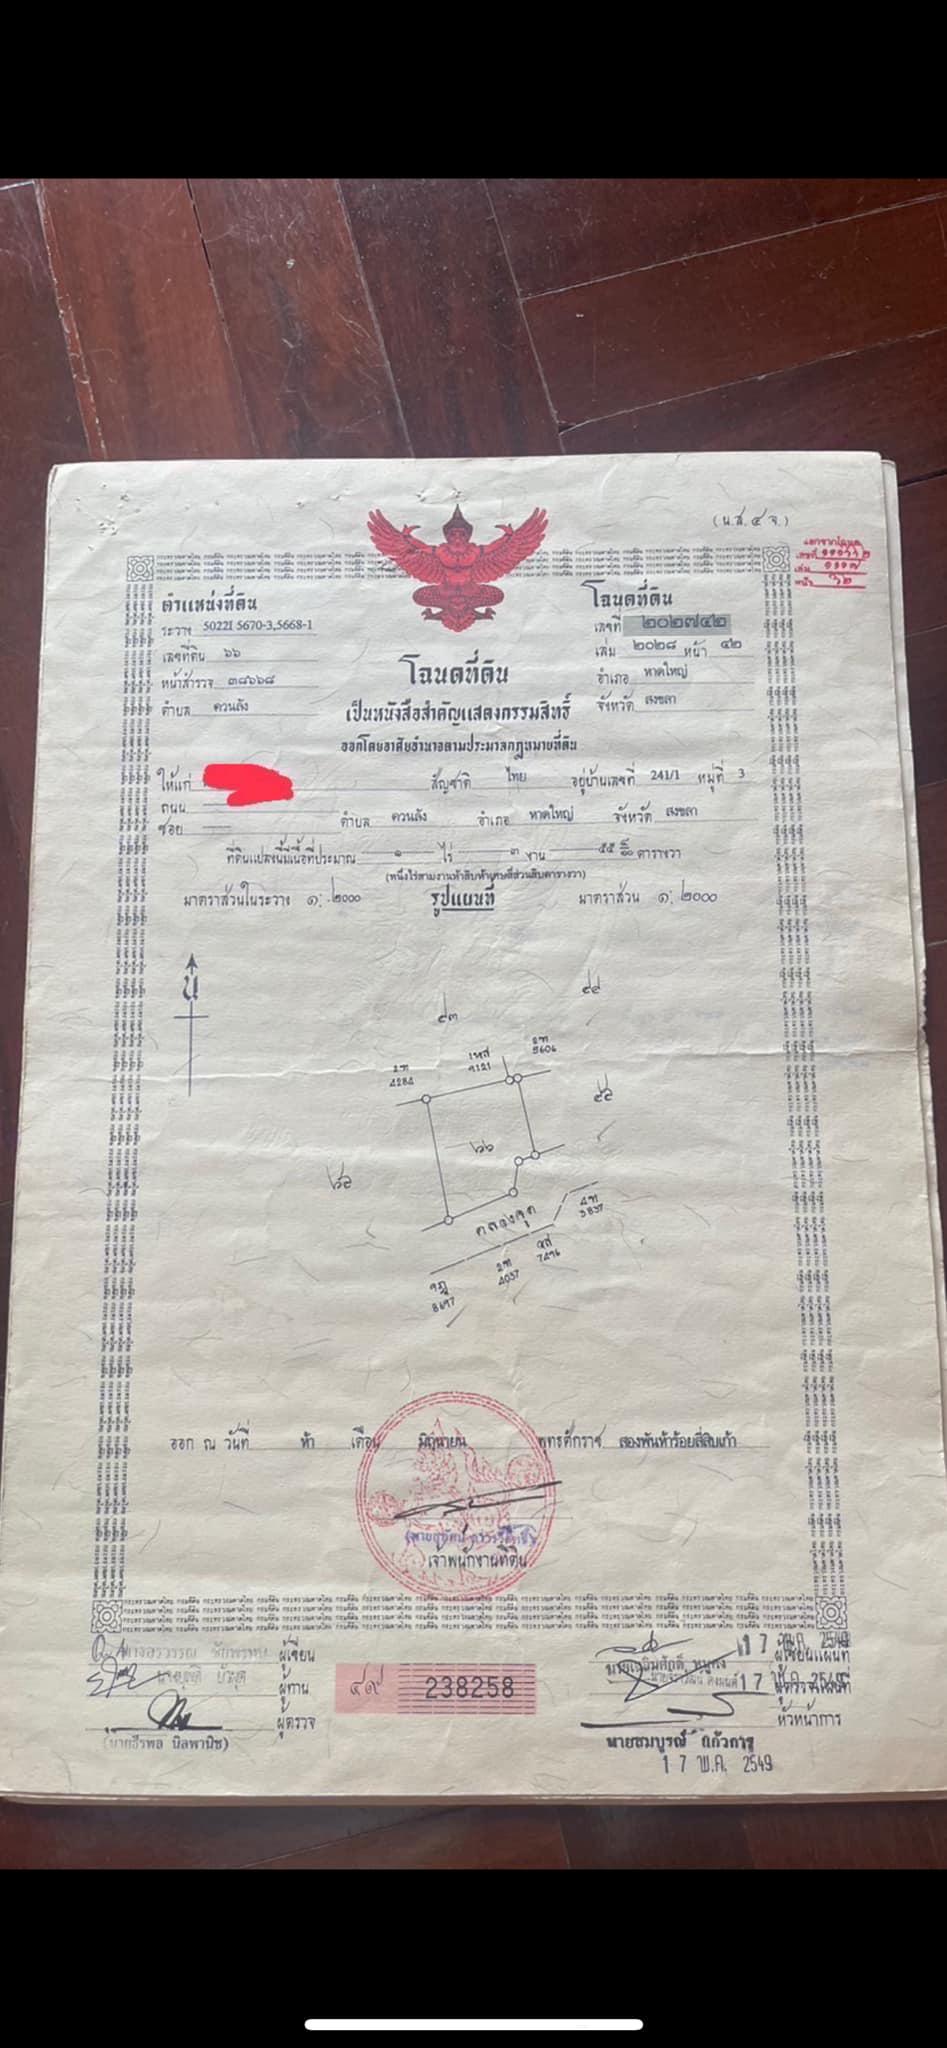 (น.ส.๔ จ.)
ตำแหน่งที่ดิน
ระวาง 5022I 5670-3,5668-1
เลขที่ดิน ๖๖
หน้าสำรวจ ๓๘๖๖๘
ตำบล ควนลัง
โฉนดที่ดิน
เลขที่ ๒๐๒๗๔๒
เล่ม ๒๐๒๘ หน้า ๔๒
อำเภอ หาดใหญ่
จังหวัด สงขลา
โฉนดที่ดิน
เป็นหนังสือสำคัญแสดงกรรมสิทธิ์
ออกโดยอาศัยอำนาจตามประมวลกฎหมายที่ดิน
ให้แก่ สัญชาติ ไทย อยู่บ้านเลขที่ 241/1 หมู่ที่ 3
ถนน
ซอย ตำบล ควนลัง อำเภอ หาดใหญ่ จังหวัด สงขลา
ที่ดินแปลงนี้มีเนื้อที่ประมาณ ๑ ไร่ ๓ งาน ๕๕ ตารางวา
มาตราส่วนในระวาง ๑:๒๐๐๐ รูปแผนที่ มาตราส่วน ๑:๒๐๐๐
น
๕๓
5606
9121
4284
๖๖
คลองจุด
5837
7496
4037
8697
ออก ณ วันที่ ห้า เดือน มิถุนายน พุทธศักราช สองพันห้าร้อยสี่สิบเก้า
เจ้าพนักงานที่ดิน
ผู้เขียน
ผู้ทาน
ผู้ตรวจ
(นายธีรพล นิลพานิช)
๔๙ 238258
17 พ.ค. 2549
ผู้เขียนแผนที่
17 พ.ค. 2549
ผู้ตรวจแผนที่
หัวหน้าการ
นายสมบูรณ์ แก้วการ
17 พ.ค. 2549